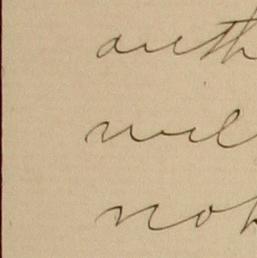 auth
will
not